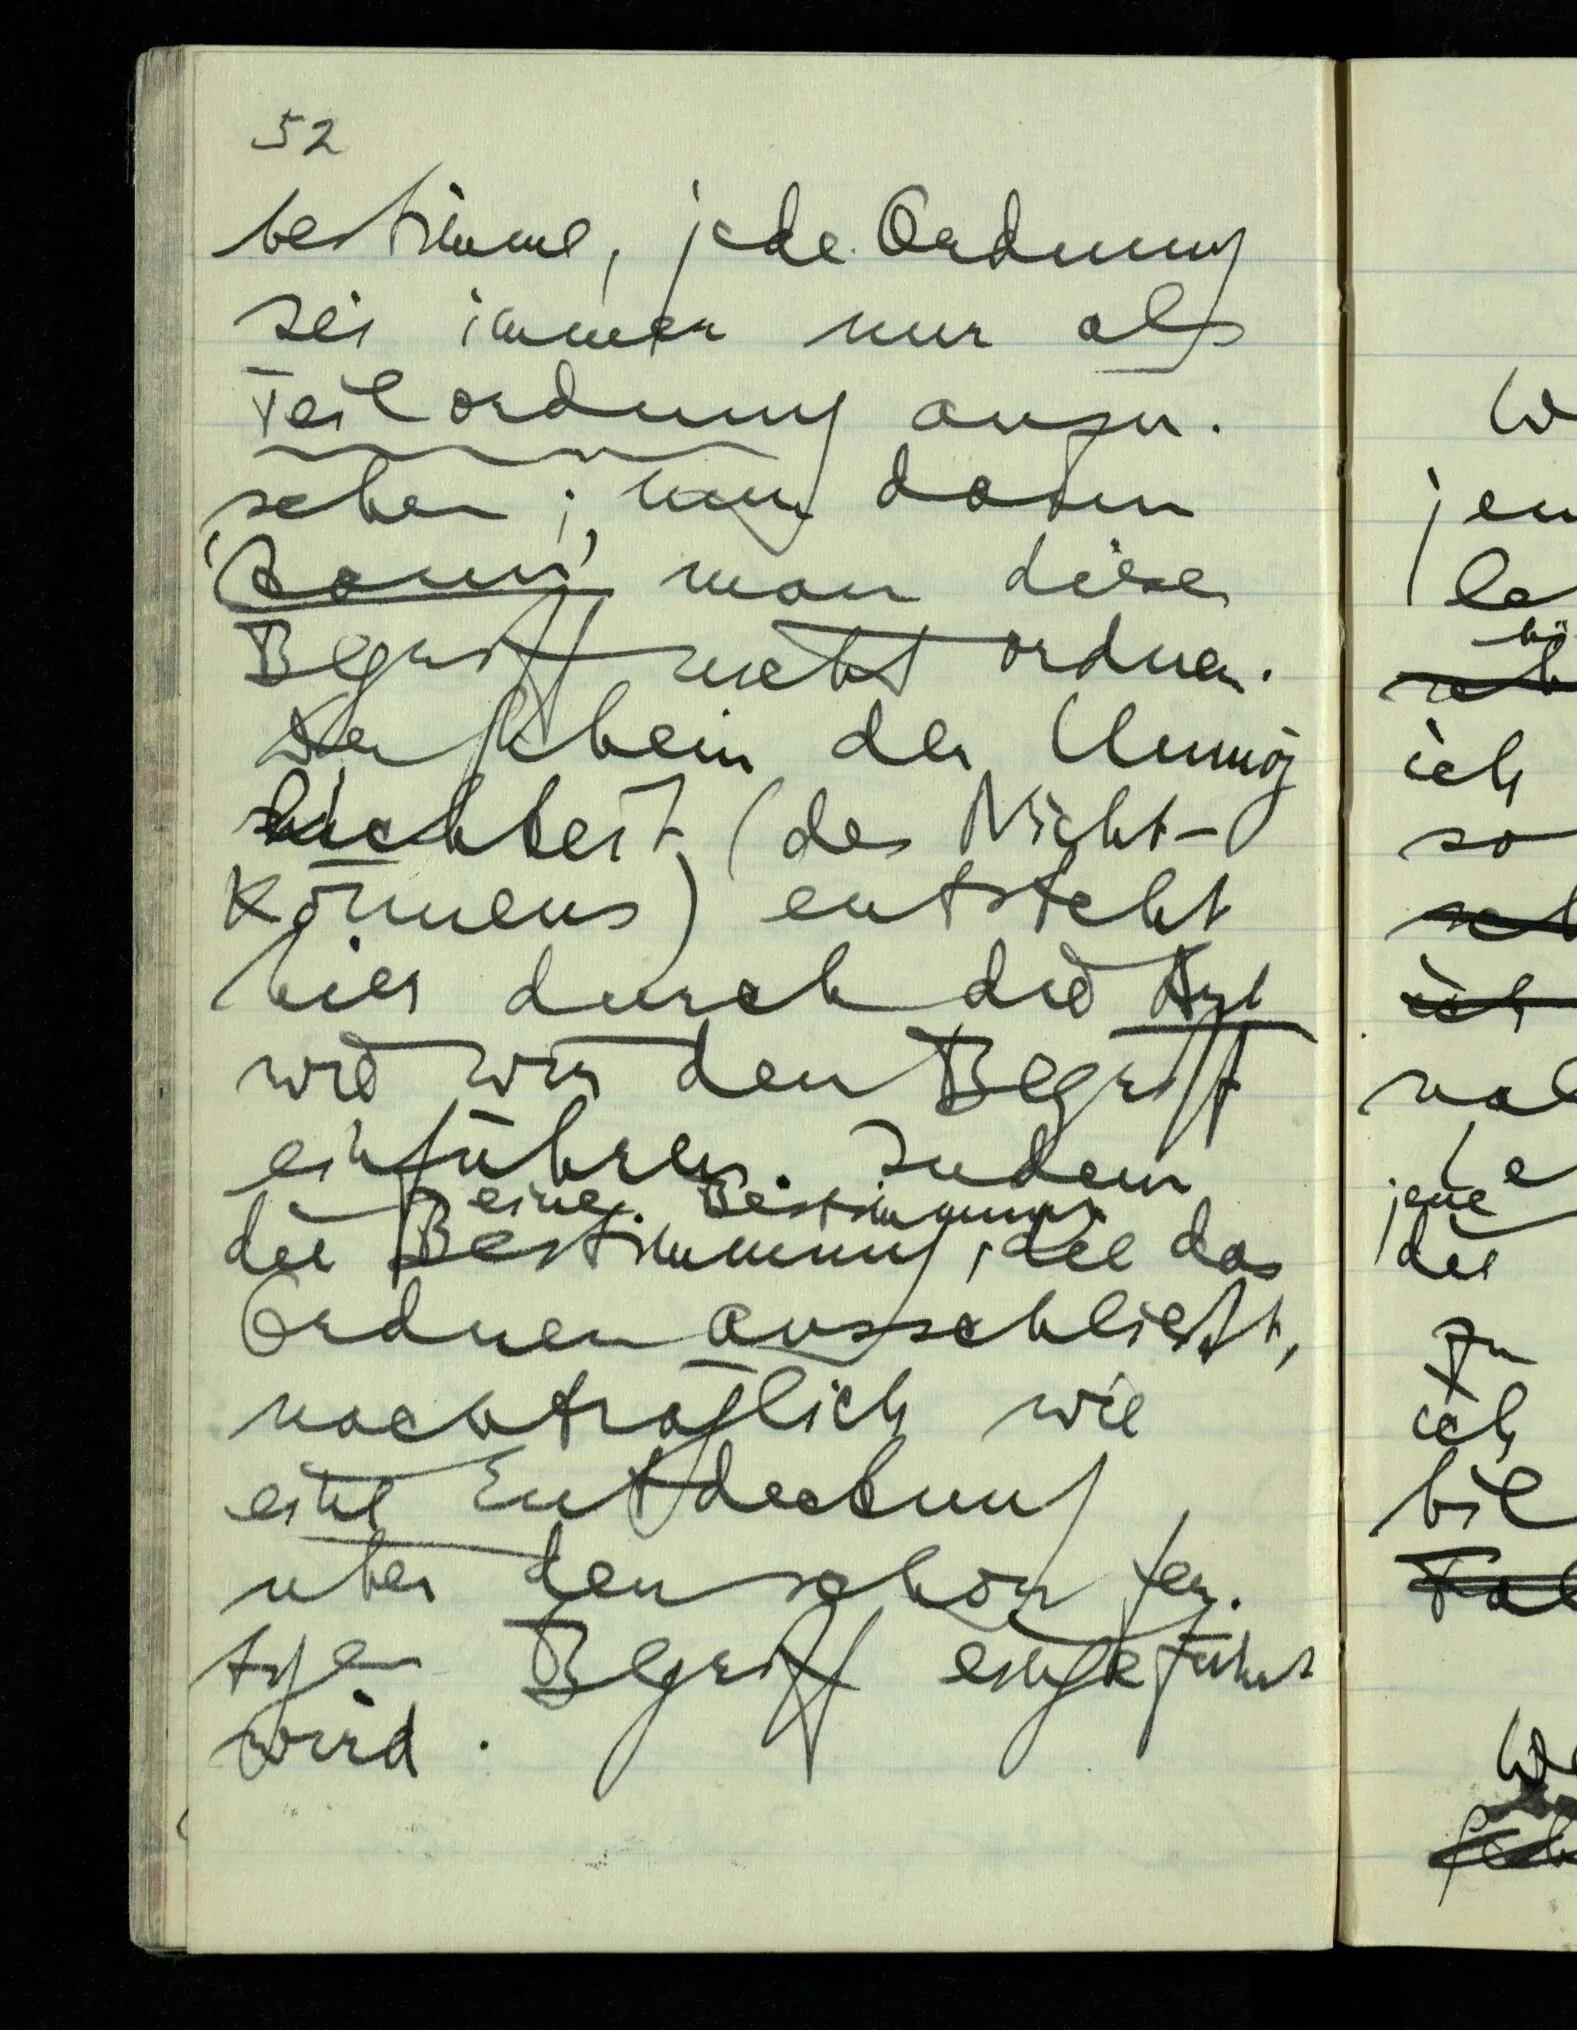 52
bestimme, jede Ordnung
sei immer nur als
Teilordnung anzu.
sehen; und darum
'kann' man diese
Begriff nicht ordnen.
Der Schein der Unmög
lichkeit (des Nicht-
Könnens) entsteht
hier durch die Art
wie wir den Begriff
einführen. Indem
eine Bestimmung
die Bestimmung, die das
Ordnen ausschließt,
nachträglich wie
eine Entdeckung
über den schon fer.
tigen Begriff eingeführt
wird.
W
jen
le
ich
so
ich
jene
die
zu
ich
bil